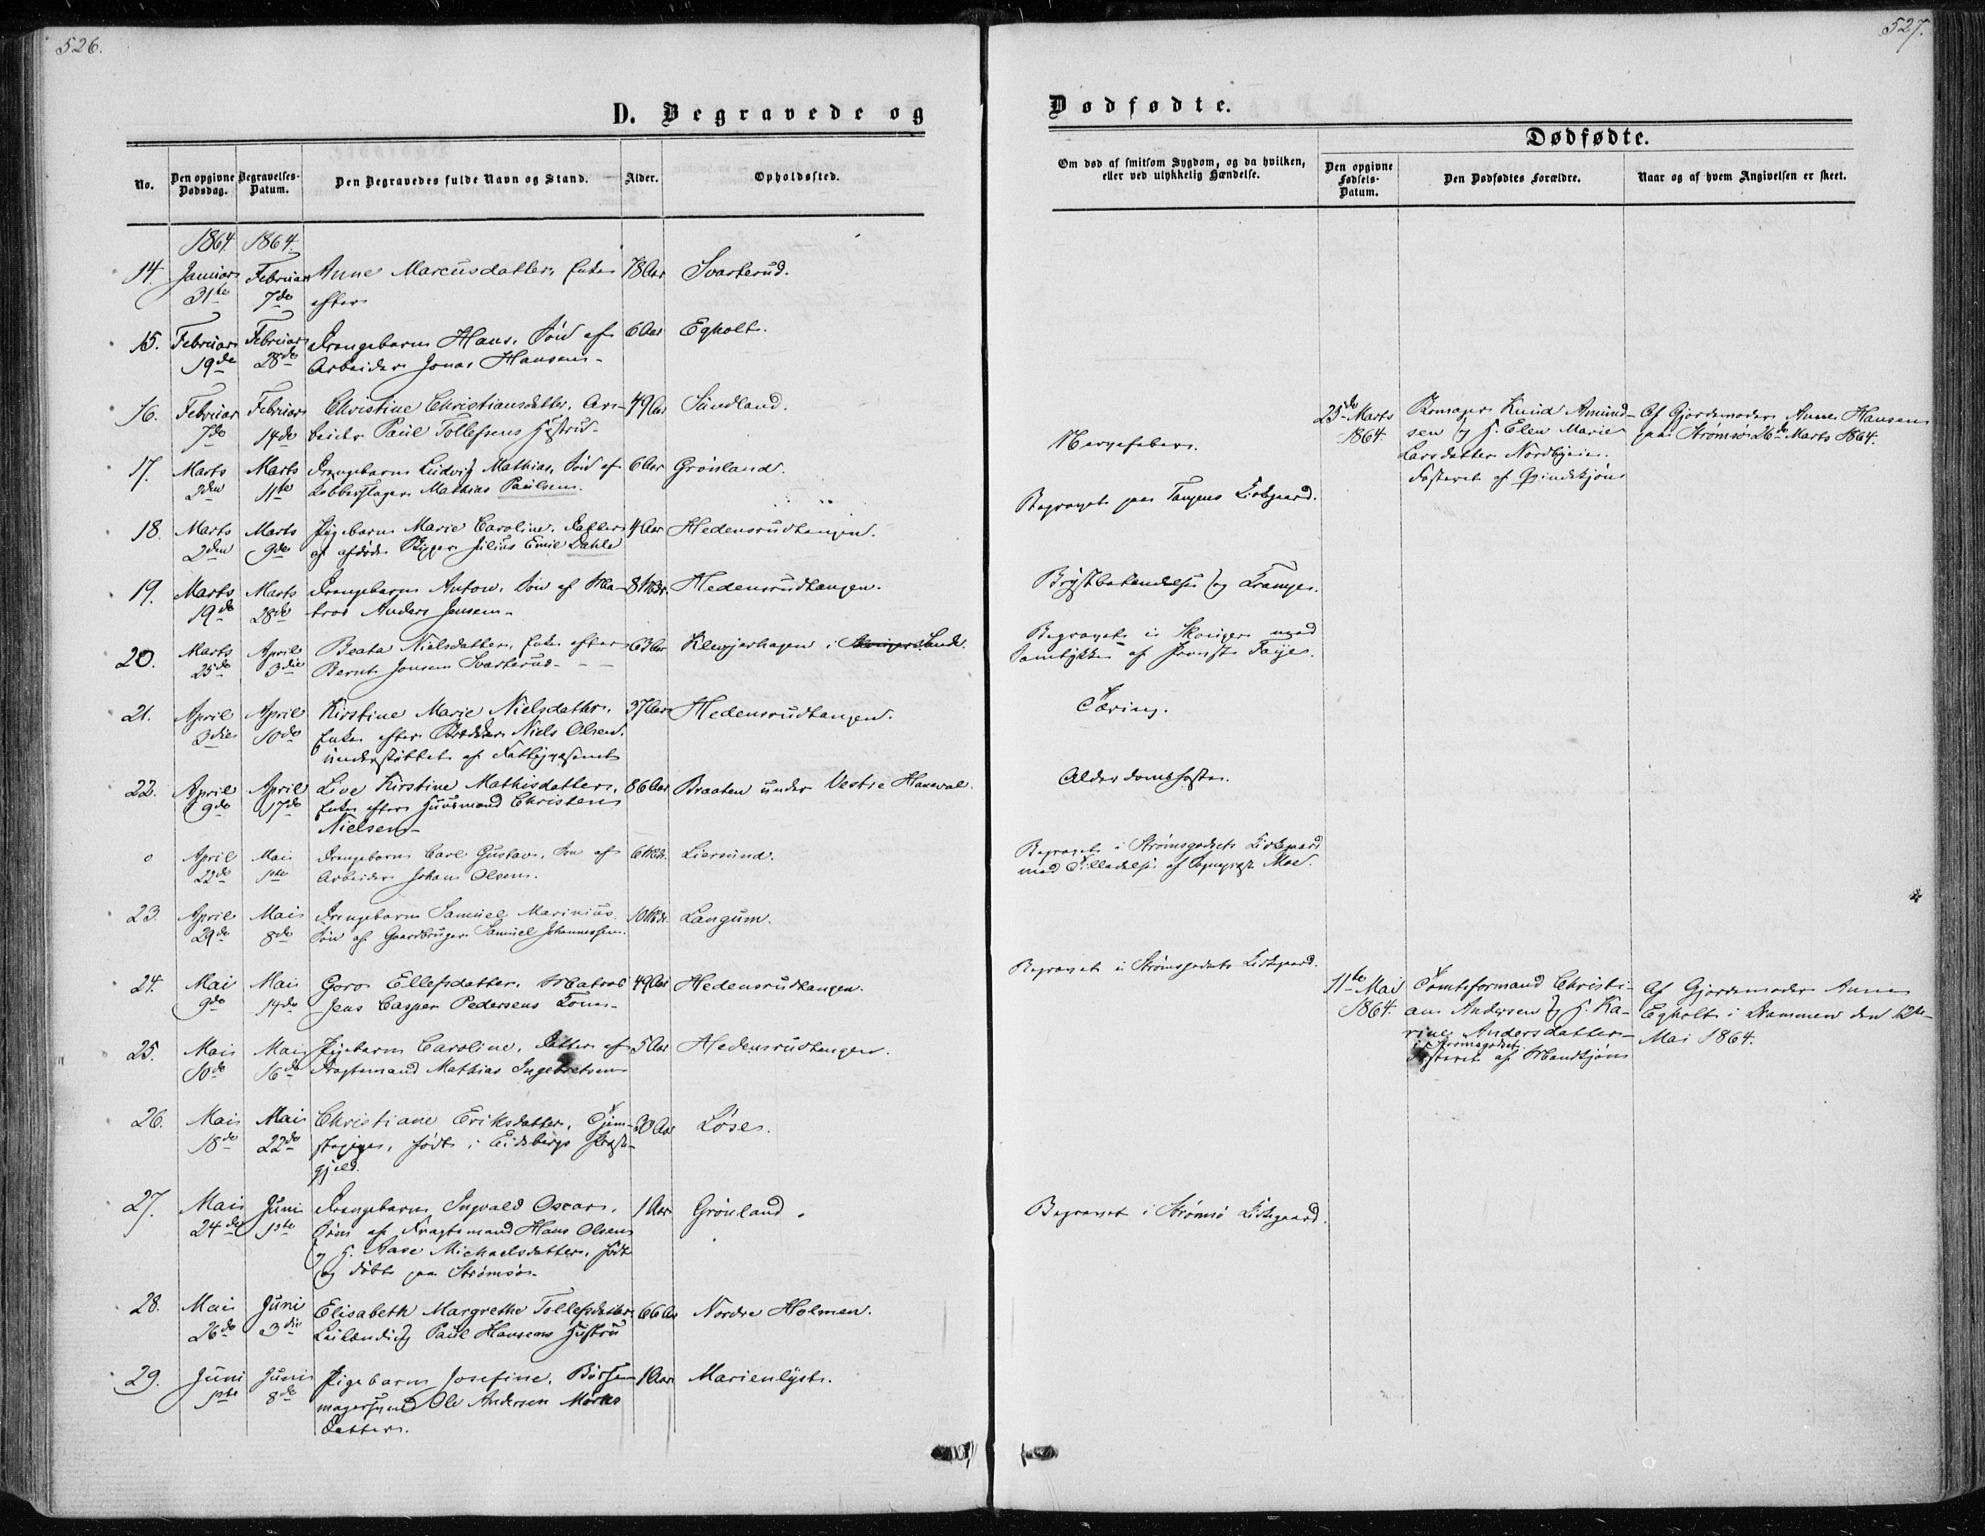 526.
527.
D. Begravede og
Dødfødte.
Dødfødte.
No.
Den opgivne Dødsdag.
Begravelses-Datum.
Den Begravedes fulde Navn og Stand.
Alder.
Opholdssted.
Om død af smitsom Sygdom, og da hvilken,
eller ved ulykkelig Hændelse.
Den opgivne Fødsels-Datum.
Den Dødfødtes Forældre.
Naar og af hvem Angivelsen er skeet.
1864. 1864.
14. Januar Februar Anne Marcusdatter, Enke 78 Aar Svarterud.
31te 7de efter
15. Februar Februar Drengebarn Hans, Søn af 6 Aar Egholt.
19de 28de Arbeider Jonas Hansen
16. Februar Februar Christine Christiansdatter, Ar- 49 Aar Sundland.
7de 14de beider Paul Tollefsens Hustru
17. Marts Marts Drengebarn Ludvig Mathias, Søn af 6 Aar Grønland.
2den 11te Kobberslager Mathias Paulsen.
18. Marts Marts Pigebarn Marie Caroline, Datter 4 Aar Hedensrudtangen.
2den 9de af afdøde Skipper Julius Emil Dahle
19. Marts Marts Drengebarn Anton, Søn af Ma- 8 Mdr. Hedensrudtangen.
19de 28de tros Anders Jensen
20. Marts April Beata Nielsdatter, Enke efter 63 Aar Klevjerhagen i Skouger Lands.
25de 3die Bernt Jonsen Svarterud
21. April April Kirstine Marie Nielsdatter, 37 Aar Hedensrudtangen.
3die 10de Enke efter Niels Olsen.
understøttet af Fattigvæsenet
22. April April Live Kirstine Mathisdatter, 86 Aar Braaten under Vestre Haneval.
9de 17de Enke efter Huusmand Christen
Nielsen
0 April Mai Drengebarn Carl Gustav, Søn af 6 Mdr. Liersund.
22de 1ste Arbeider Johan Olsen.
23. April Mai Drengebarn Samuel Marinius, 10 Mdr. Langum.
29de 8de Søn af Gaardbruger Samuel Johannessen.
24. Mai Mai Goro Ellefsdatter, Matros 49 Aar Hedensrudtangen.
9de 14de Jens Casper Pedersens Kone
25. Mai Mai Pigebarn Caroline, Datter af 5 Aar Hedensrudtangen.
10de 16de Fragtemand Mathias Ingebretsen
26. Mai Mai Christiane Eriksdatter, Tjene- 30 Aar Løse.
18de 22de stepige, født i Eidsbergs Præste-
gjeld.
27. Mai Juni Drengebarn Ingvald Oscar, 1 Aar Grønland.
24de 1ste Søn af Fragtemand Hans Olsen
og H. Aase Michaelsdatter, født
og døbt paa Strømsø.
28. Mai Juni Elisabeth Margrethe Tollefsdatter 66 Aar Nordre Holmen.
26de 3die Leilænding Paul Hansens Hustru
29. Juni Juni Pigebarn Josefine, Børse- 1 Aar Marienlyst.
1ste 8de magersvend Ole Andersen Mørks
Datter.
Nervefeber.
Begravet paa Tangens Kirkegaard.
Brystbetændelse og Krampe.
Begravet i Skouger med
Samtykke af Provst Faye.
Tæring.
Alderdomshoste.
Begravet i Strømsgodsets Kirkegaard
med Tilladelse af Sognepræst Moe.
Begravet i Strømsgodsets Kirkegaard.
Begravet i Strømsø Kirkegaard.
25de Marts Knud Amund- Af Gjordemoder Anne Hansen
1864. sen og H. Elen Marie paa Strømsø 26de Marts 1864.
Larsdatter Nordbyeie.
Fosteret af Qvindekjøn
11te Mai Tomteformand Christi- Af Gjordemoder Anne
1864. an Andersen og H. Ka- Egholt i Drammen den 12te
rine Andersdatter Mai 1864.
i Strømsgodset.
Fosteret af Mandkjøn